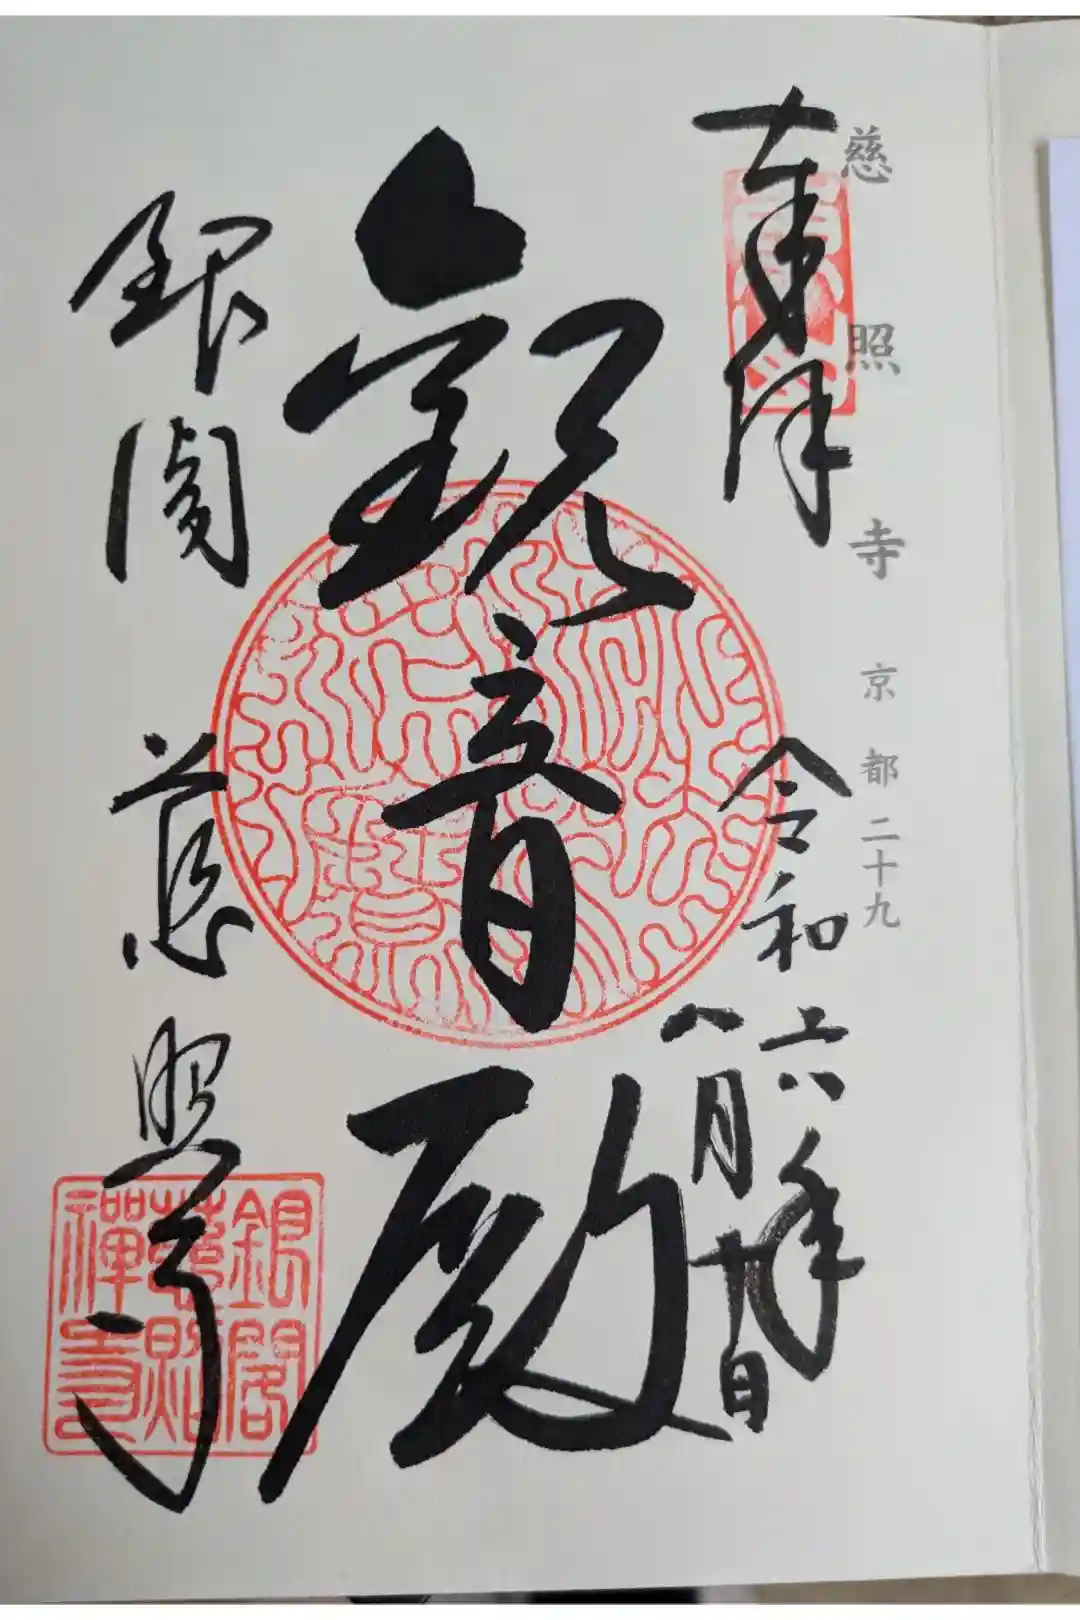 慈照寺 京都二十九
奉拝
令和六年
八月
観音殿
銀閣 慈照寺
銀閣
慈照
禪寺